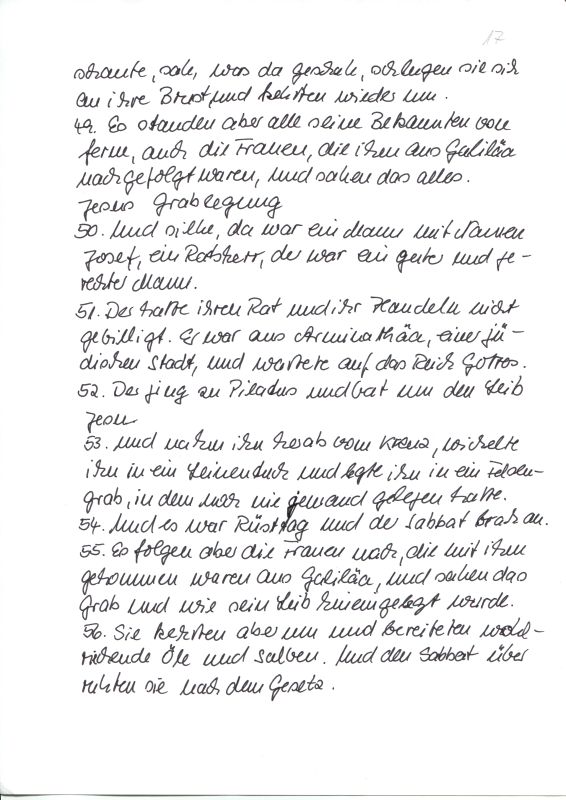 17
schaute, sah, was da geschah, schlugen sie sich
an ihre Brust, und kehrten wieder um.
49. Es standen aber alle seine Bekannten von
fern, auch die Frauen, die ihm aus Galiläa
nachgefolgt waren, und sahen das alles.
Jesus Grablegung
50. Und siehe, da war ein Mann mit Namen
Josef, ein Ratsherr, der war ein guter und ge-
rechter Mann.
51. Der hatte ihren Rat und ihr Handeln nicht
gebilligt. Er war aus Arimathäa, einer jü-
dischen Stadt, und wartete auf das Reich Gottes.
52. Der ging zu Pilatus und bat um den Leib
Jesu.
53. Und nahm ihn herab vom Kreuz, wickelte
ihn in ein Leinentuch und legte ihn in ein Felsen-
grab, in dem noch nie jemand gelegen hatte.
54. Und es war Rüsttag und der Sabbat brach an.
55. Es folgen aber die Frauen nach, die mit ihm
gekommen waren aus Galiläa, und sahen das
Grab und wie sein Leib hineingelegt wurde.
56. Sie kehrten aber um und bereiteten wohl-
riechende Öle und Salben. Und den Sabbat über
ruhten sie nach dem Gesetz.